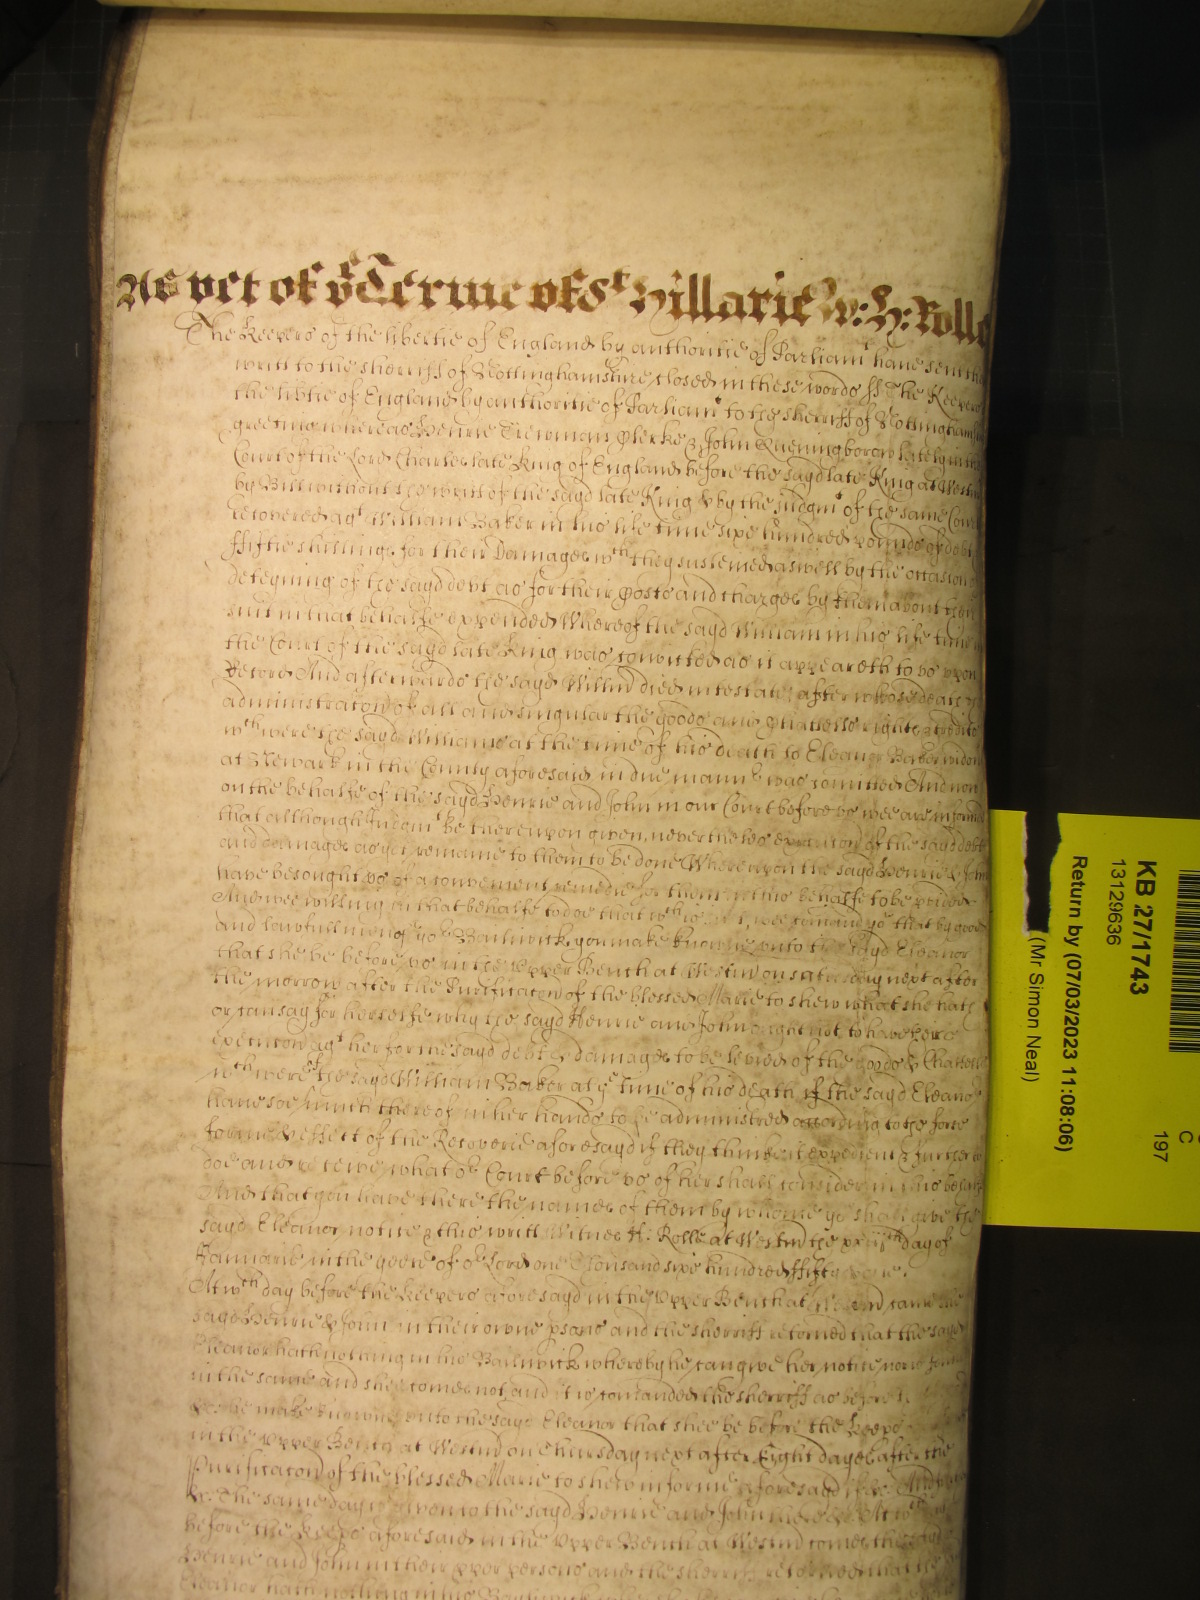 As yet of ye Terme of St Hillarie W: H: Rolle
The Keepers of the libertie of England by authoritie of Parliamt have sent
writt to the sherriff of Nottinghamshire closed in these words ss The Keepers
the libtie of England by authoritie of Parliamt to the sherriff of Nottinghamsh
greeting whereas Henrie Clerke & John Queningborow lately in the
Court of the Lord Charles late King of England before the sayd late King at Westm
by Bill without the writt of the sayd late King & by the Judgmt of the same Court
recovered agt William Baker in his life time sixe hundred pounds of debt
ffiftie shillings for their Damages wch they susteined aswell by the occasion
deteyning of the sayd debt as for their Costs and charges by them about their
suit in that behalfe expended Whereof the sayd William in his life time in
the Court of the sayd late King was convicted as it appeareth to us upon
Record And afterwards the sayd Willm died intestate after whose death
administracon of all and singular the goods and Chattells rights & credits
wch were the sayd Williams at the time of his death to Eleanor Baker widow
at Newark in the County aforesaid in due mannr was comitted And now
on the behalfe of the sayd Henrie and John in our Court before us wee are informed
that although Judgmt be thereupon given, neverthelesse execucon of the sayd debt
and damages as yet remaine to them to be done Whereupon the sayd Henrie & John
have besought us of a convenient remedie for them in this behalfe to be provided
And wee willing in that behalfe to doe that wch is wee comand you that by good
and lawfull men of yor Bailiwick, you make knowne unto the sayd Eleanor
that she be before us in the Upper Bench at Westm on saturday next after
the morrow after the Purificacon of the blessed Marie to shew what she hath
or can say for herselfe why the sayd Henrie and John ought not to have there
execucon agt her for the sayd debt & damages to be levied of the goods & Chattells
wch were the sayd William Baker at ye time of his death if the sayd Eleanor
have soe much thereof in her hands to be administred according to the force
forme & effect of the Recoverie aforesayd if they thinke it expedient & further to
doe and receive what or Court before us of her shall consider in this behalfe
And that you have there the names of them by whome yo shall give the
sayd Eleanor notice & this writt Witnes H: Rolle at Westm the day of
Januarie in the yeere of or Lord one Thousand sixe hundred ffifty
At wch day before the Keepers aforesayd in the Upper Bench at Westm came the
sayd Henrie & John in their owne psons and the sherriff retorned that the sayd
Eleanor hath nothing in his Bailiwick whereby he can give her notice nor is found
in the same and shee comes not and it is comanded the sherriff as before
he make knowne unto the sayd Eleanor that shee be before the Keeps
in the Upper Bench at Westm on Thursday next after Eight dayes after the
Purificacon of the blessed Marie to shew in forme aforesaid if &c And
&c The same day is given to the sayd Henrie and John there &c At wch
before the Keeps aforesaid in the Upper Bench at Westm comes the
Henrie and John in their pper persons and the sherriff retorned that the
Eleanor hath nothing in his Bailiwick
KB 27/1743
13129636
Return by (07/03/2023 11:08:06)
(Mr Simon Neal)
C
197